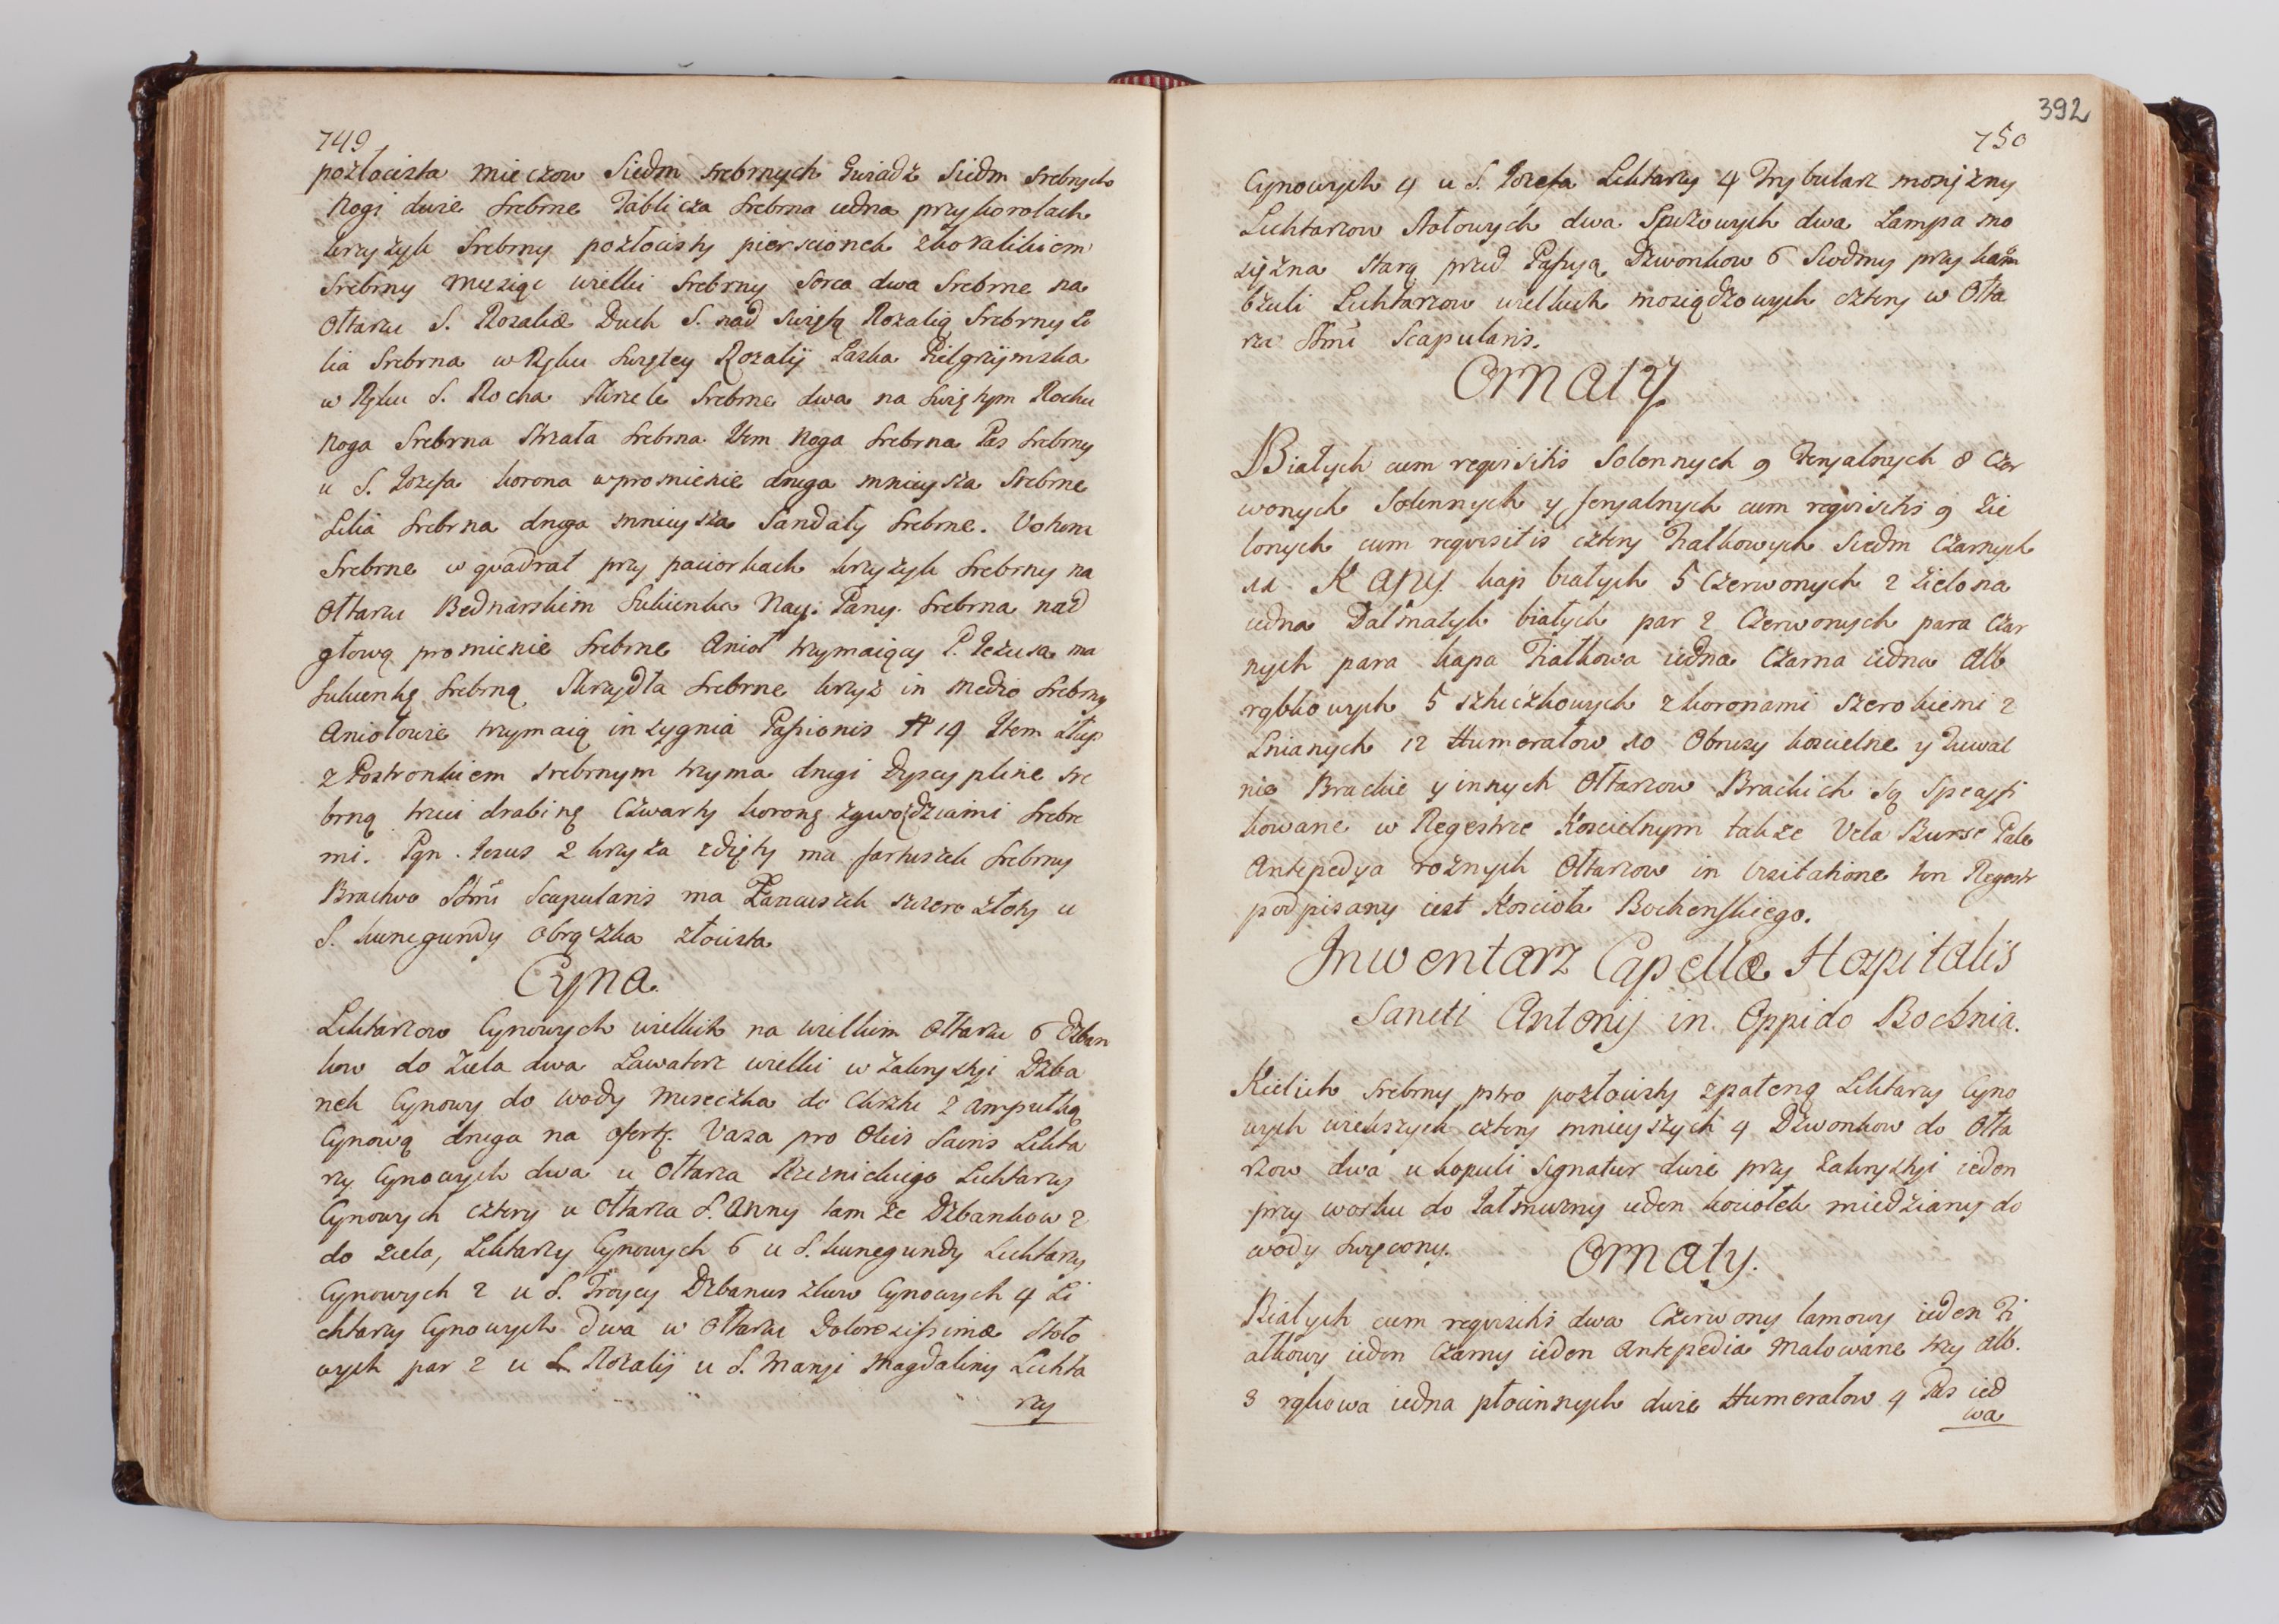 749
pozłocista mieczow Siedm srebrnych Gwiadz Siedm srebnych
Nogi dwie srebrne Tablicza srebrna iedna przykorolach
krzyzyk srebrny pozłocisty pierscionek zkoralikiem
srebrny miesiąc wielki srebrny serca dwa srebrne na
Ołtarzu S. Rozaliæ Duch S. nad swiętą Rozalią srebrny Li
lia srebrna w Ręku swiętey Rozalij Laska Pielgrzymska
w Ręku S. Rocha strzele srebrne dwa na swiętym Rochu
Noga srebrna strzała srebrna Item Noga srebrna Pas srebrny
u S. Jozefa korona wpromienie druga mnieysza srebrne
Lilia srebrna druga mnieysza Sandały srebrne. Votum
srebrne w quadrat przy paciorkach krzyzyk srebrny na
Ołtarzu Bednarskim Sukienka Nay: Pany srebrna nad
głową promienie srebrne Anioł trzymaiący P. Jezusa ma
sukienkę srebrną skrzydła srebrne krzyz in medio srebrny
Aniołowie trzymaią in sygnia Passionis N 14 Item słup
z Postronkiem srebrnym trzyma drugi Dyscyplinę sre
brną trzeci drabinę Czwarty koronę zgwozdziami srebre
mi. Pan Jezus z krzyza zdięty ma fartuszek srebrny
Bractwo SSmi Scapularis ma Łancuszek szczero złoty u
S. kunegundy obrączka złocista
Cyna.
Lichtarzow Cynowych wielkich na wielkim Ołtarzu 6 Dzban
kow do Ziela dwa Lawaterz wielki w Zakrystyi Dzba
nek Cynowy do wody miseczka do Chrztu z ampułką
Cynową druga na ofertę. Vaza pro Oleis Sacris Lichta
rzy Cynowych dwa u Ołtarza Rzeznickiego Lichtarzy
Cynowych cztery u Ołtarza S. Anny tam ze Dzbankow 2
do ziela, Lichtarzy Cynowych 6 u S. kunegundy Lichtarzy
Cynowych 2 u S. Troycy Dzbanuszkow Cynowych 4 Li
chtarzy Cynowych dwa w Ołtarzu Dolorosissimæ stoło
wych par 2 u S. Rozalij u S. Maryi Magdaliny Lichta
rzy
392
750
Cynowych 4 u S. Jozefa Lichtarzy 4 Trybularz mosiężny
Lichtarzow stołowych dwa Spiżowych dwa Lampa mo
siężna stara przed Passyą Dzwonkow 6 Siodmy przy kam
bzuli Lichtarzow wielkich mosiądzowych cztery w Ołta
rzu SSmi Scapularis.
Ornaty
Białych cum requisitis Solennych 9 feryalnych 8 Czer
wonych Solennych y feryalnych cum requisitis 9 Zie
lonych cum requisitis cztery Fiałkowych Siedm Czarnych
11. Kapy kap białych 5 Czerwonych 2 Zielona
iedna Dalmatyk białych par 2 Czerwonych para Czar
nych para kapa Fiałkowa iedna Czarna iedna Alb
rąbkowych 5 sztuczkowych z koronami szerokiemi 2
Lnianych 12 Humerałow 10 Obrusy koscielne y Tuwal
nie Brackie y innych Ołtarzow Brackich są specyfi
kowane w Regestrze Koscielnym takze Vela Bursse Pale
Antepedya roznych Ołtarzow in Visitatione ten Regestr
podpisany iest Koscioła Bochenskiego.
Inwentarz Capellæ Hospitalis
Sancti Antonij in Oppido Bochnia.
Kielich srebrny pstro pozłocisty zpateną Lichtarzy Cyno
wych wiekszych cztery mnieyszych 4 Dzwonkow do Ołta
rzow dwa u kopuli Sygnatur dwie przy Zakrystyi ieden
przy worku do Jałmuzny ieden kociołek miedziany do
wody swięcony.
Ornaty.
Białych cum requisitis dwa Czerwony lamowy ieden Fi
ałkowy ieden Czarny ieden Antepedia Malowane trzy Alb.
3 rąbkowa iedna płociennych dwie Humerałow 4 Pas ied
wa